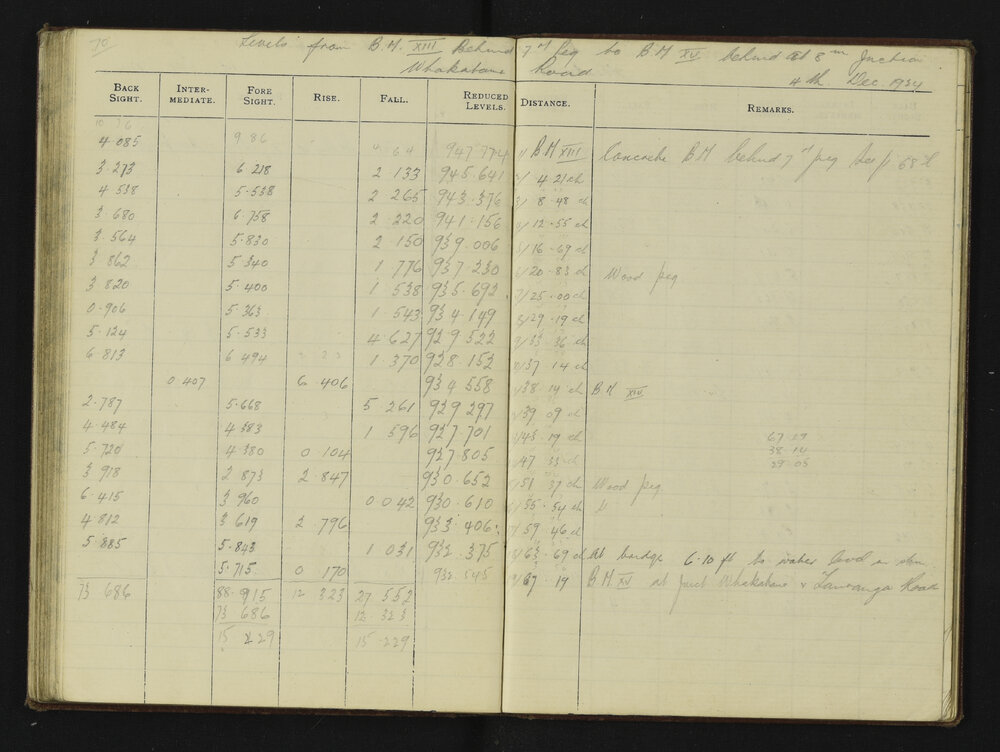 70
Levels from B.M. XIII Behind 7 m peg to B.M XV behind at 8 m Junction
Whakatane Road
4 th Dec. 1934
BACK SIGHT. INTER-MEDIATE. FORE SIGHT. RISE. FALL. REDUCED LEVELS. DISTANCE. REMARKS.
4.085 947 774 1/ B M XIII Concrete B M behind 7 m peg See p 68
3.273 6 218 2 133 945.641 2/ 4 21 ch
4 538 5.538 2 265 943.376 3/ 8.48 ch
3.680 6.758 2 220 941.156 12.55 ch
3.564 5.830 2 150 939.006 16.69 ch
3 862 5 340 1 776 937.230 20.83 ch Wood peg
3 820 5.400 1 538 935.692 7/25.00 ch
0.906 5.363 1 543 934.149 8/29.19 ch
5.124 5.533 4 627 929 522 33.36 ch
6 813 6 494 1 370 928.152 37.14 ch
0 407 6 406 934 558 38.14 ch B M XIV
2.787 5.668 5 261 929 297 39 09 ch
4.484 4 383 1 596 927.701 43.19 ch 67.19
38.14
29.05
5.720 4.380 0 104 927.805 47 33 ch
3 918 2 873 2 847 930.652 51.37 ch Wood peg
6.415 3 960 0 042 930.610 55.54 ch "
4 812 3 619 2 796 933.406 59.46 ch
5.885 5.843 1 031 932.375 63.69 ch At bridge 6.10 ft to water level in
5.715 0 170 932.545 67.19 B M XV at junct Whakatane & Tauranga Road
73 686 88.915 12 323 27 552
73 686 12 323
15 229 15.229